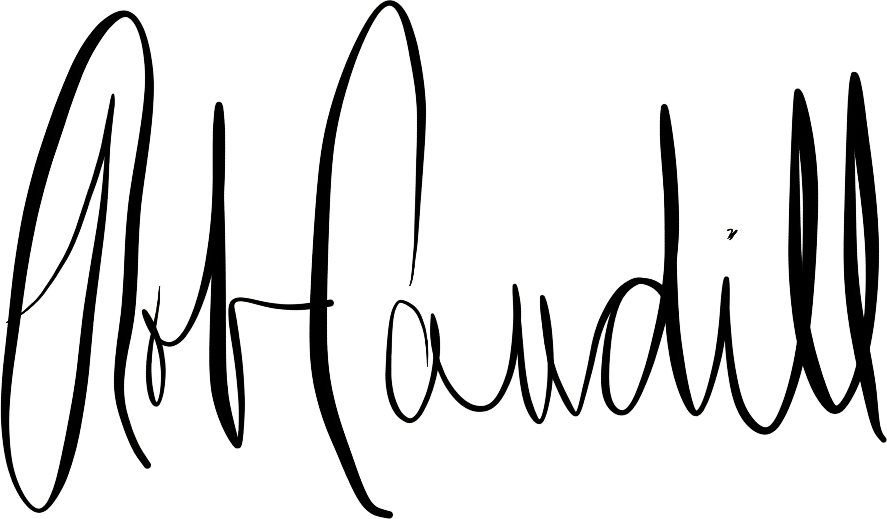 Rob Caudill